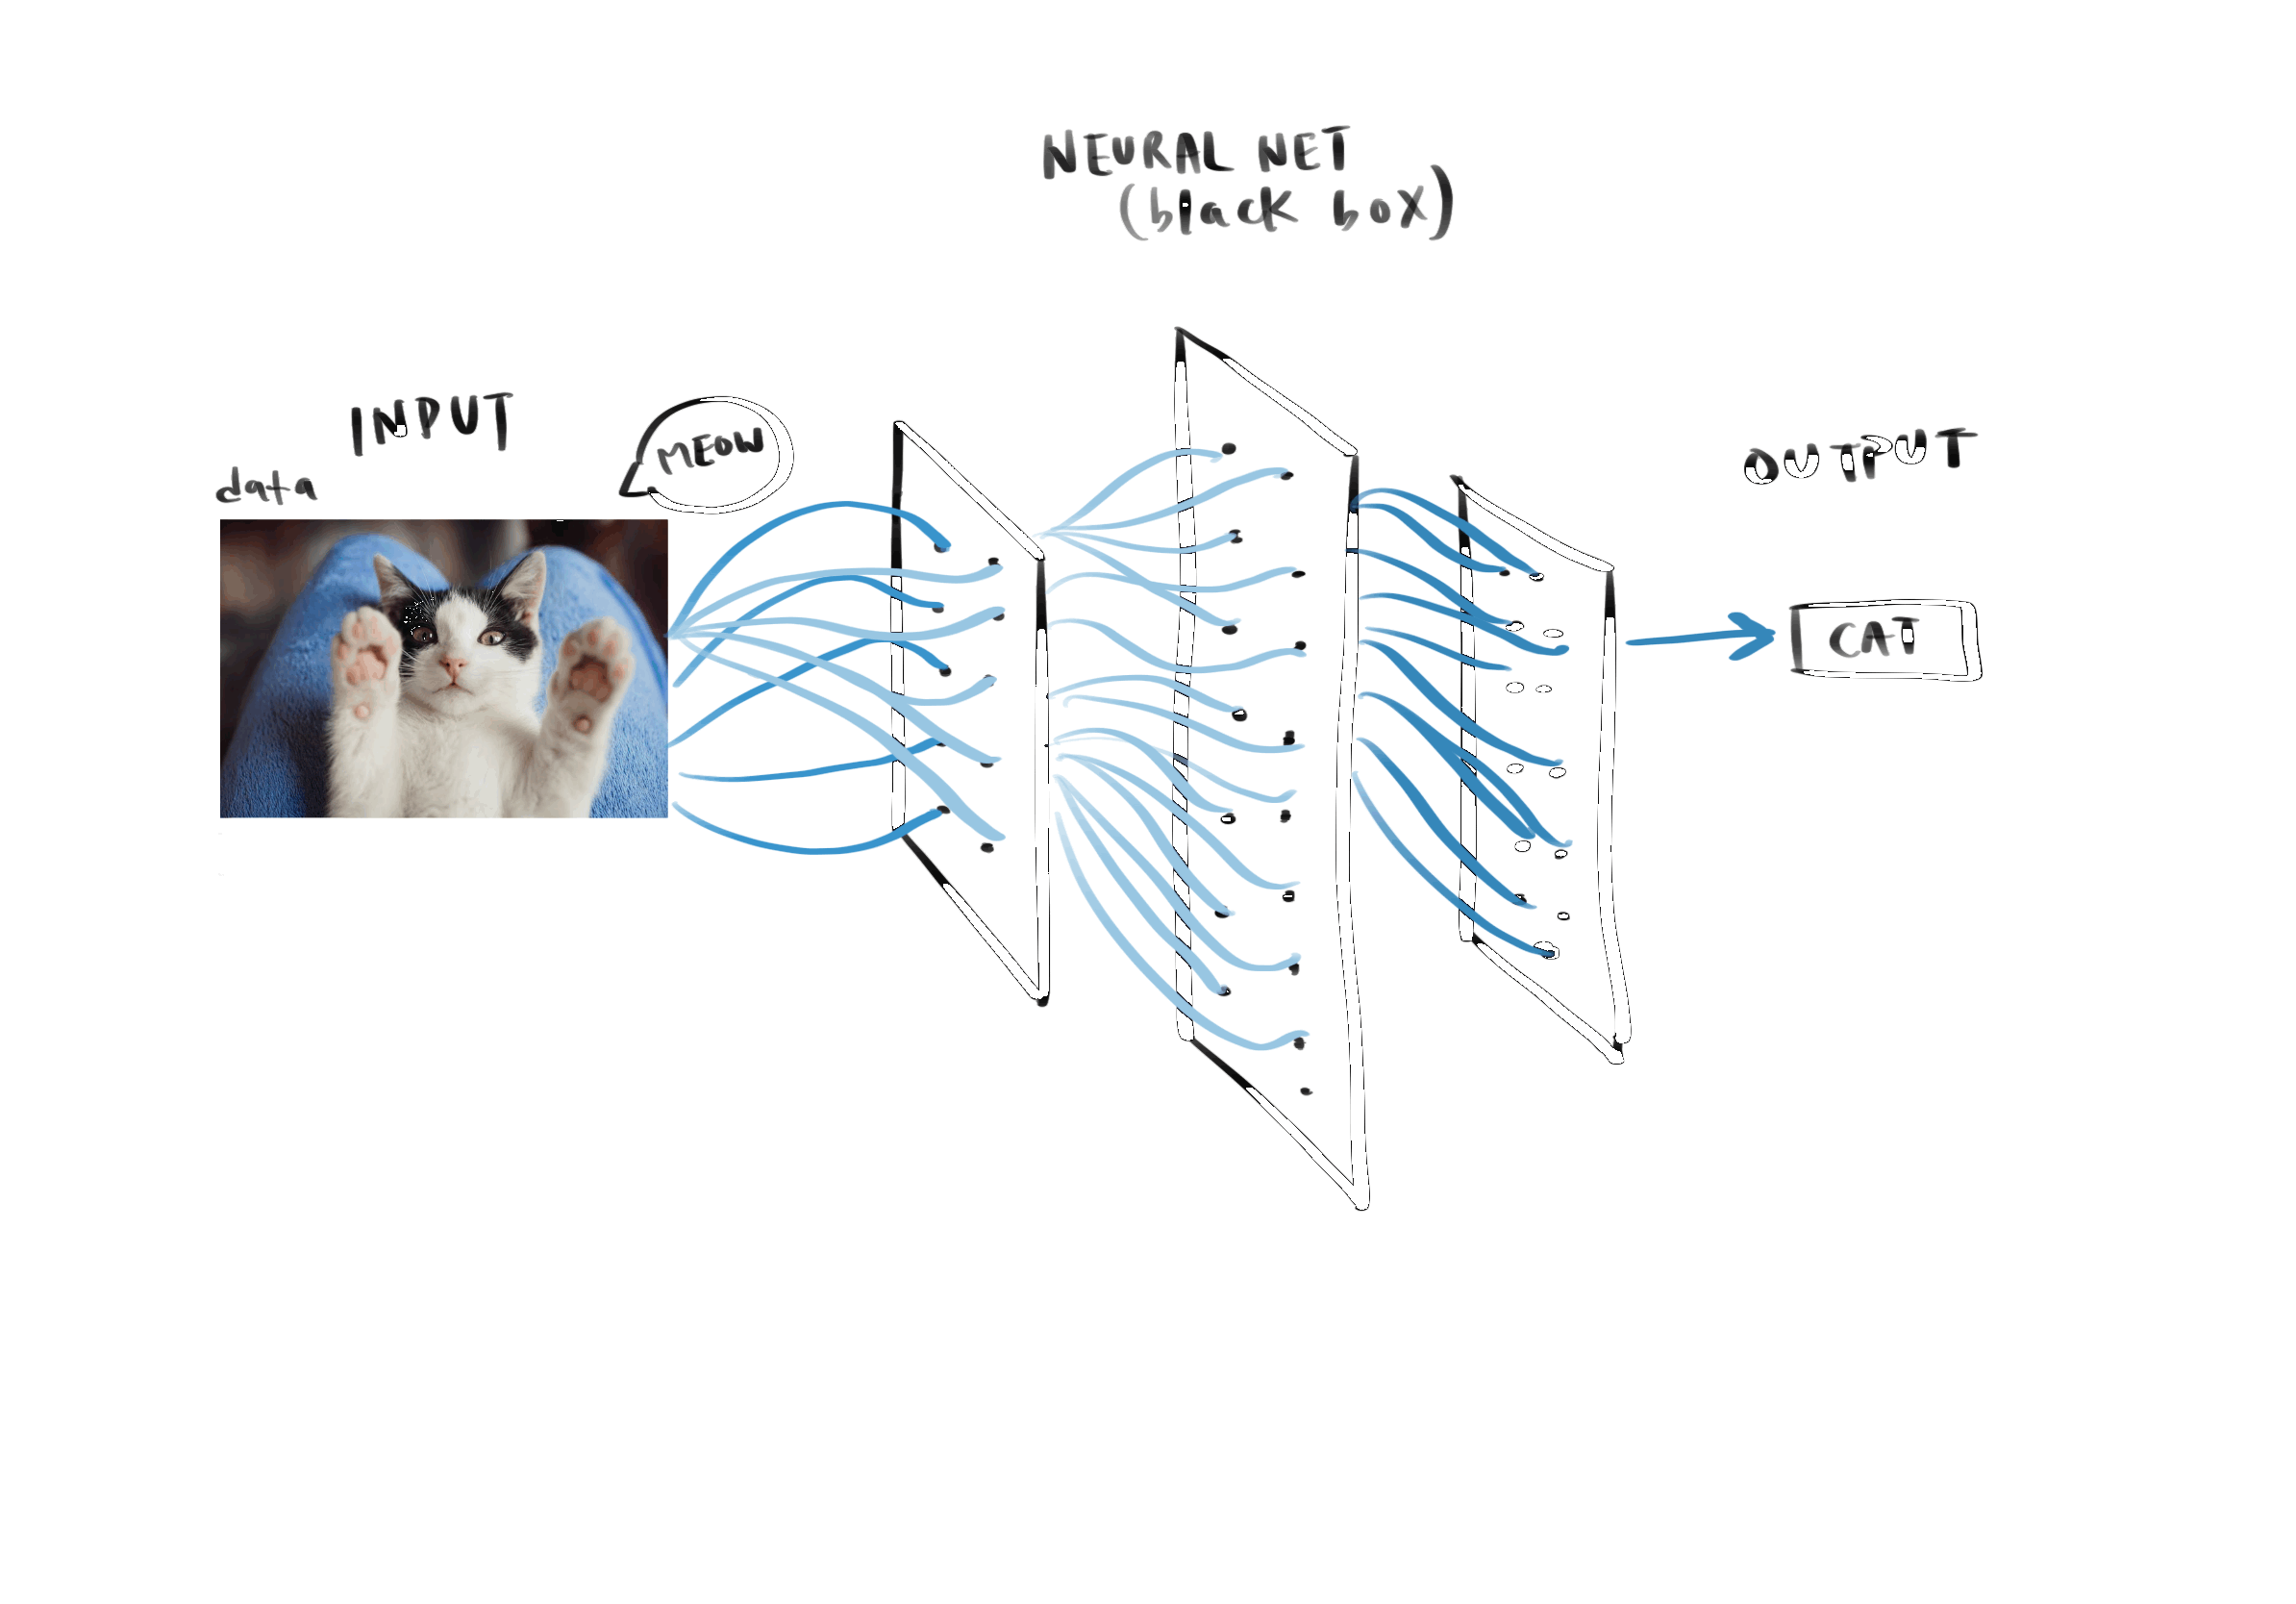 NEURAL NET
(black box)
INPUT
data
MEOW
OUTPUT
CAT